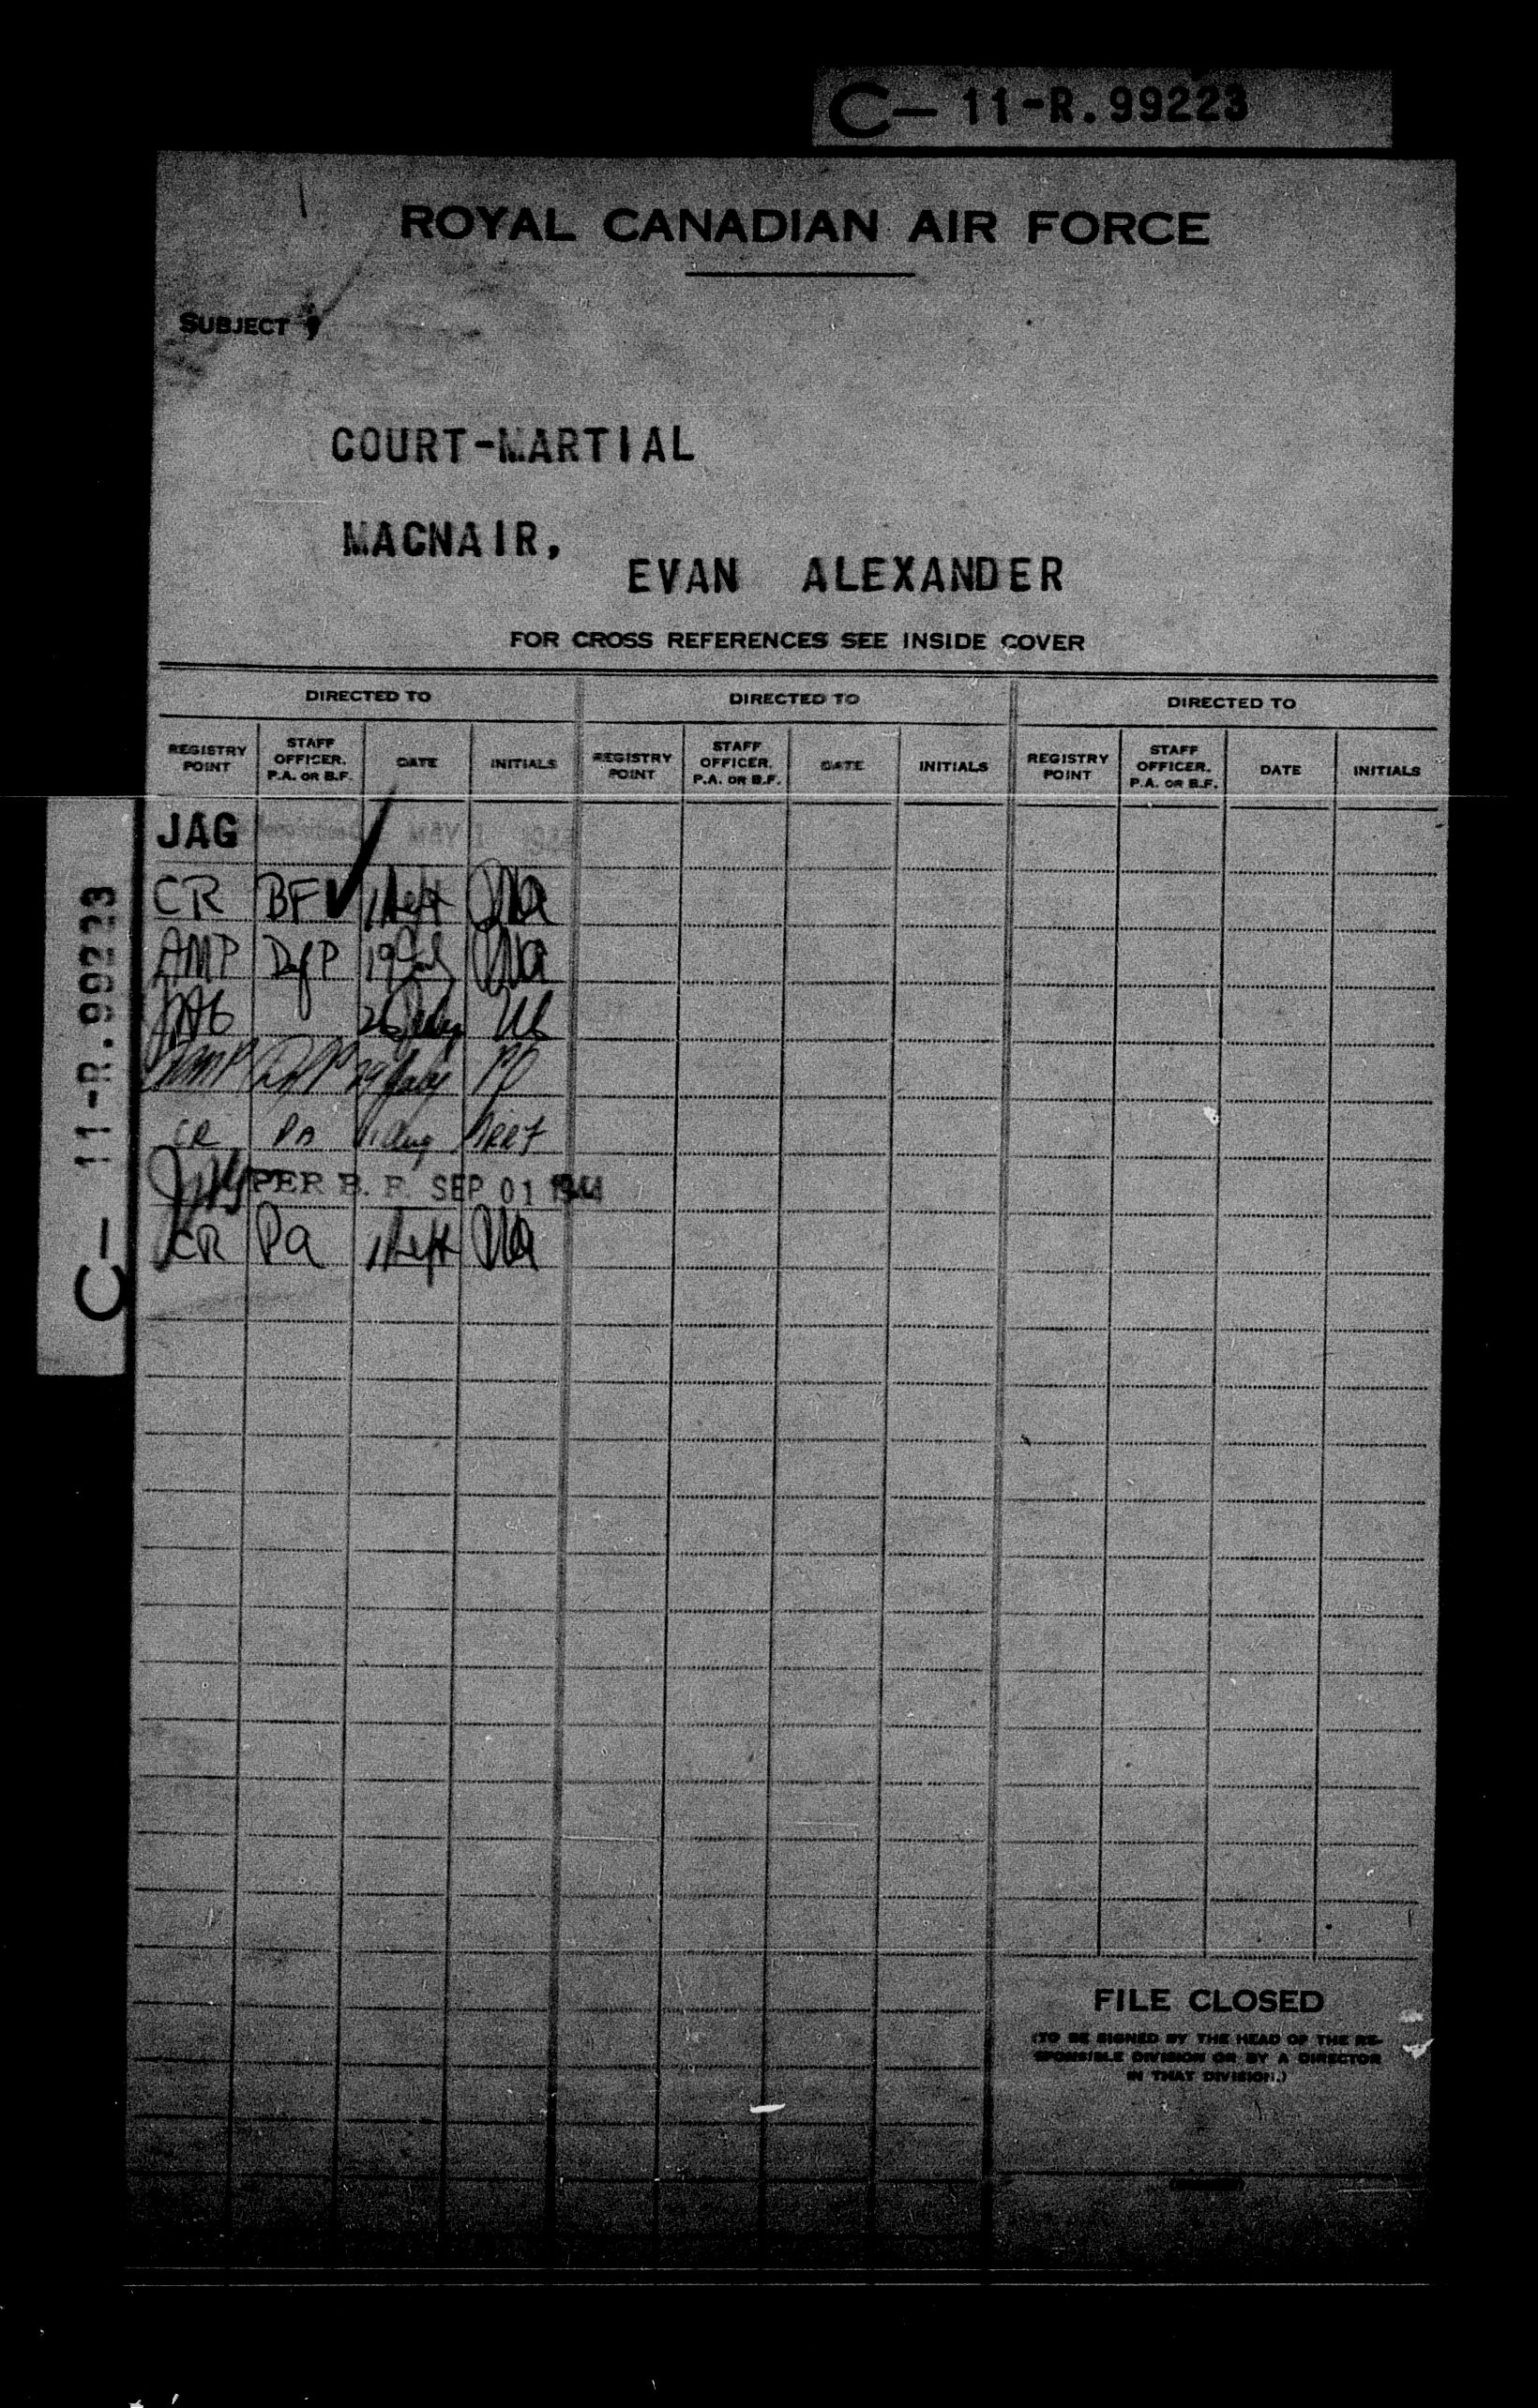 C- 11-R.99223
ROYAL CANADIAN AIR FORCE
SUBJECT
COURT-MARTIAL
MACNAIR,
EVAN ALEXANDER
FOR CROSS REFERENCES SEE INSIDE COVER
DIRECTED TO DIRECTED TO DIRECTED TO
REGISTRY POINT STAFF OFFICER, P.A. OR B.F. DATE INITIALS REGISTRY POINT STAFF OFFICER, P.A. OR B.F. DATE INITIALS REGISTRY POINT STAFF OFFICER, P.A. OR B.F. DATE INITIALS
JAG MAY
CR BF 1 Sept
AMP 19 July
JAG 26 July
AMP 29 July
CR PA 1 Aug
PER B. F. SEP 01 1944
CR Pa 1 Sept
C- 11-R.99223
FILE CLOSED
(TO BE SIGNED BY THE HEAD OF THE RE-
SPONSIBLE DIVISION OR BY A DIRECTOR
IN THAT DIVISION.)